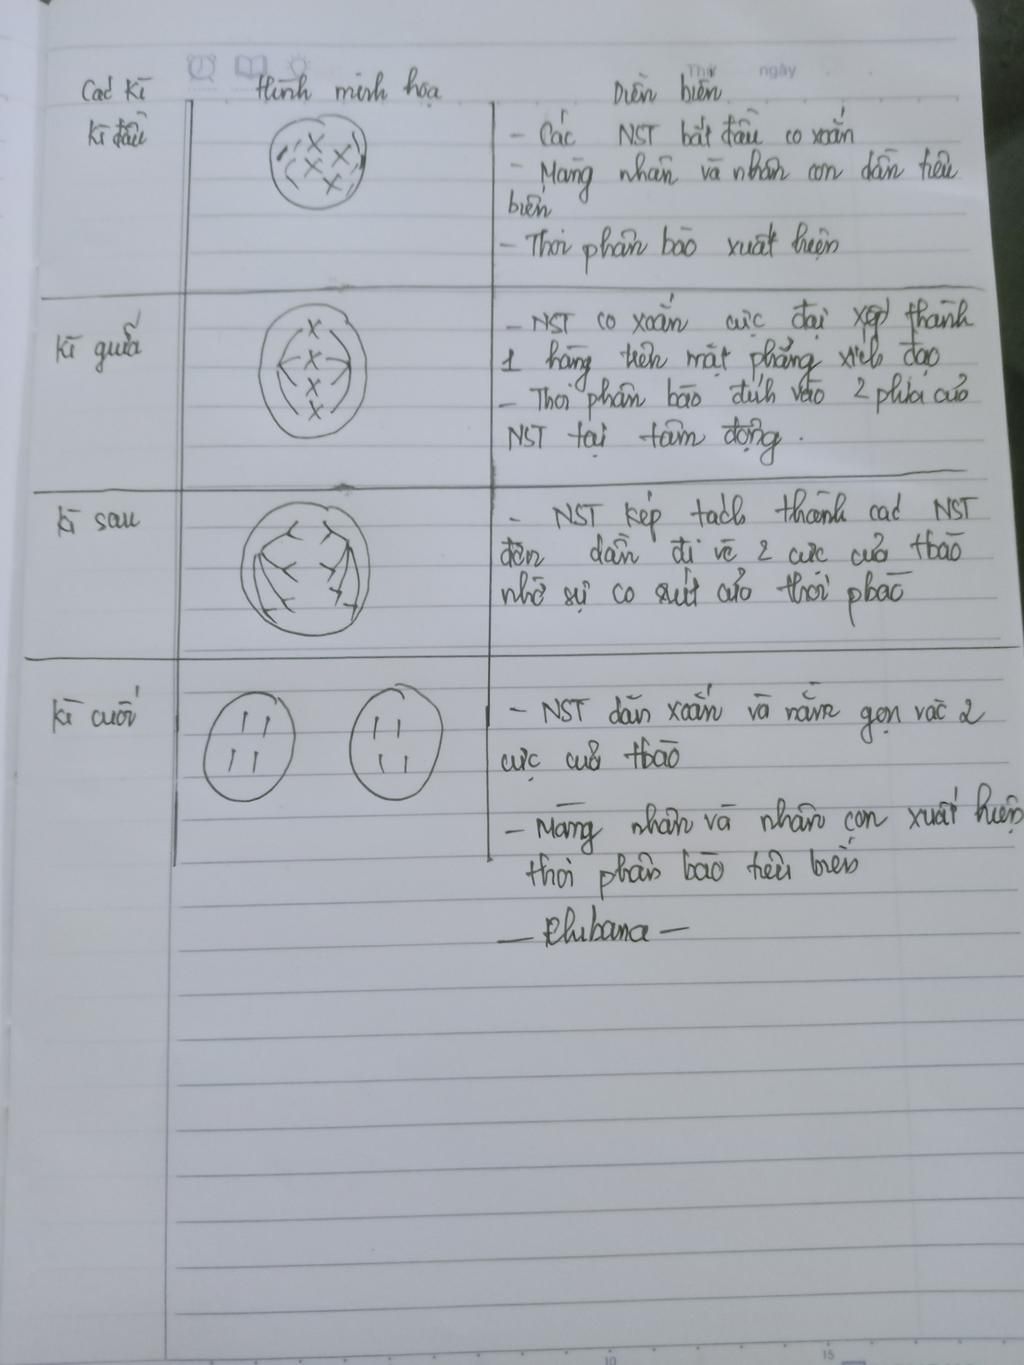 Thứ ngày
Các kì Hình minh họa Diễn biến
Kì đầu
- Các NST bắt đầu co xoắn
- Màng nhân và nhân con dần tiêu
biến
- Thoi phân bào xuất hiện
Kì giữa
- NST co xoắn cực đại xếp thành
1 hàng trên mặt phẳng xích đạo
- Thoi phân bào đính vào 2 phía của
NST tại tâm động.
Kì sau
- NST kép tách thành các NST
đơn dần đi về 2 cực của tbào
nhờ sự co rút của thoi pbào
Kì cuối
- NST dãn xoắn và nằm gọn về 2
cực của tbào
- Màng nhân và nhân con xuất hiện
thoi phân bào tiêu biến
10 15